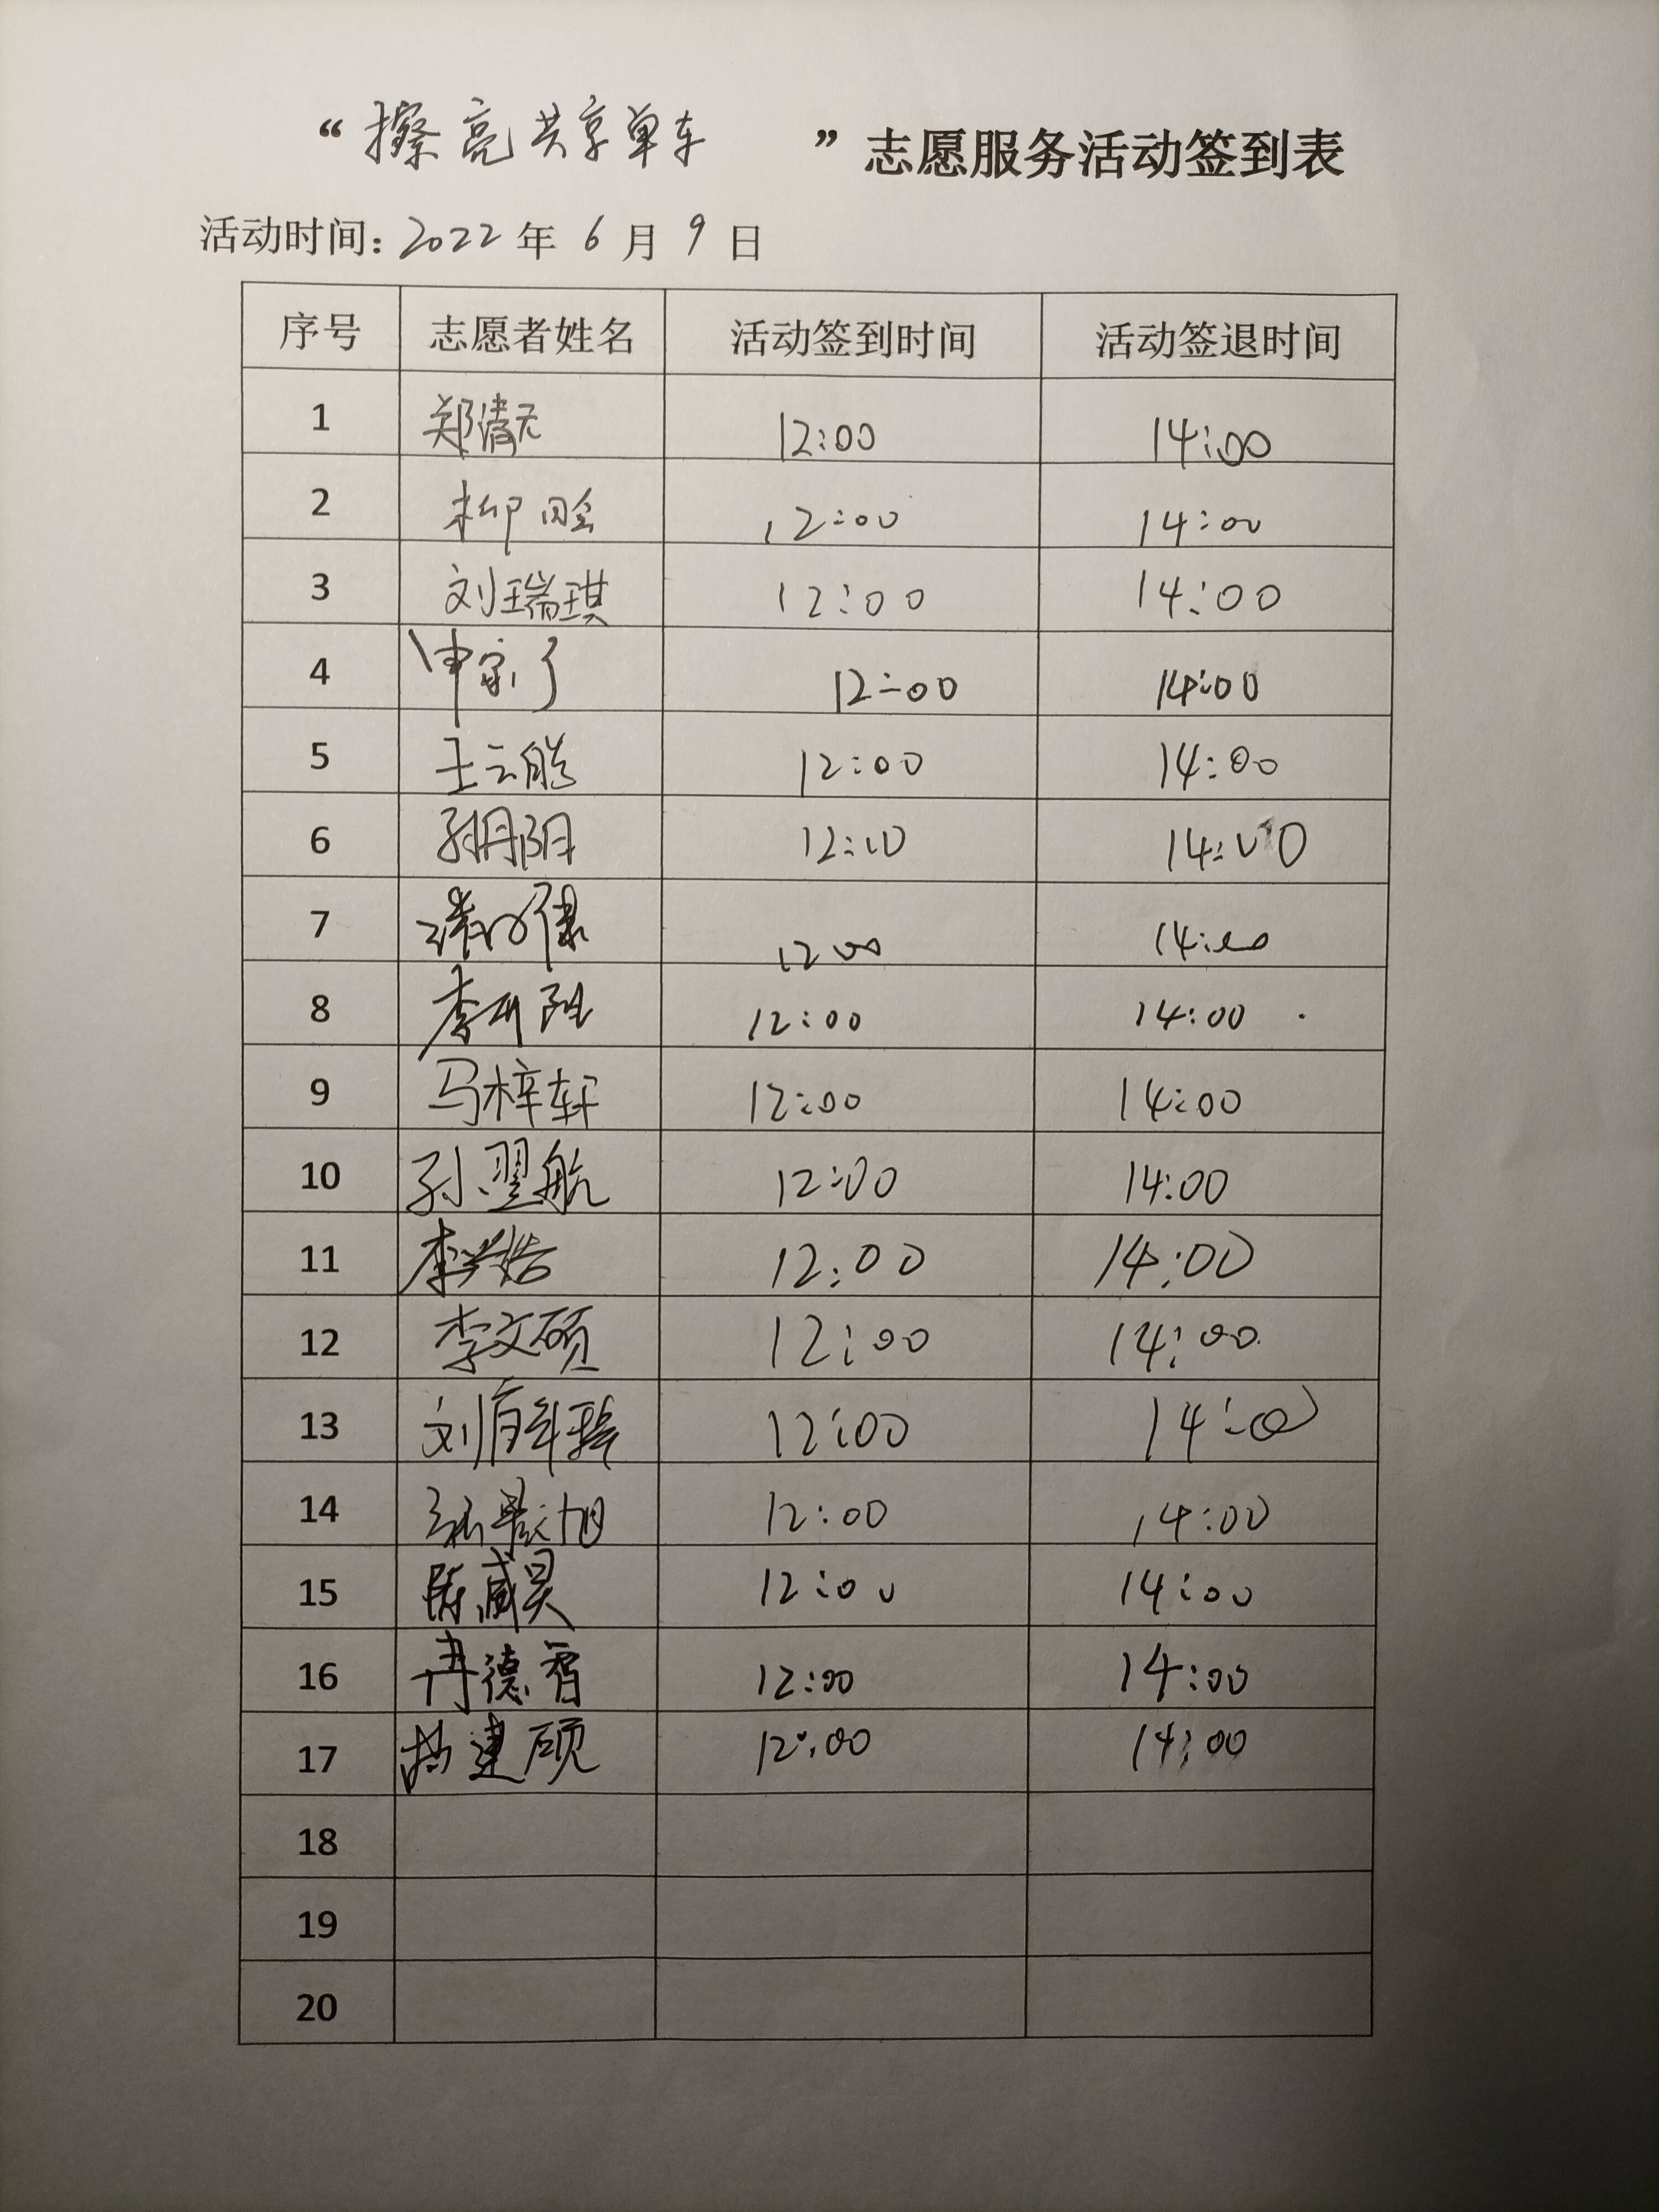 “擦亮共享单车”志愿服务活动签到表
活动时间：2022年6月9日
序号 志愿者姓名 活动签到时间 活动签退时间
1 郑 12:00 14:00
2 柳 12:00 14:00
3 刘瑞琪 12:00 14:00
4 12:00 14:00
5 王云鹏 12:00 14:00
6 孙丹阳 12:00 14:00
7 12 00 14:00
8 李 阳 12:00 14:00
9 马梓轩 12:00 14:00
10 孙翌航 12:00 14:00
11 李兴浩 12:00 14:00
12 李文硕 12:00 14:00
13 刘 12:00 14:00
14 张景旭 12:00 14:00
15 陈威昊 12:00 14:00
16 冉德智 12:00 14:00
17 建硕 12:00 14:00
18
19
20